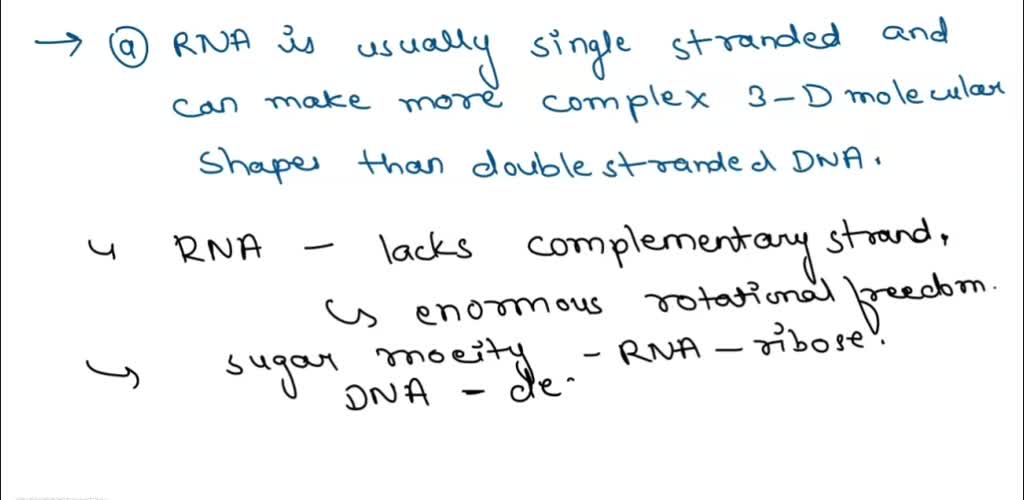 → ⓐ RNA is usually single stranded and
can make more complex 3-D molecular
shapes than double stranded DNA.
↳ RNA - lacks complementary strand.
↳ enormous rotational freedom.
↳ sugar moeity - RNA - ribose.
DNA - de